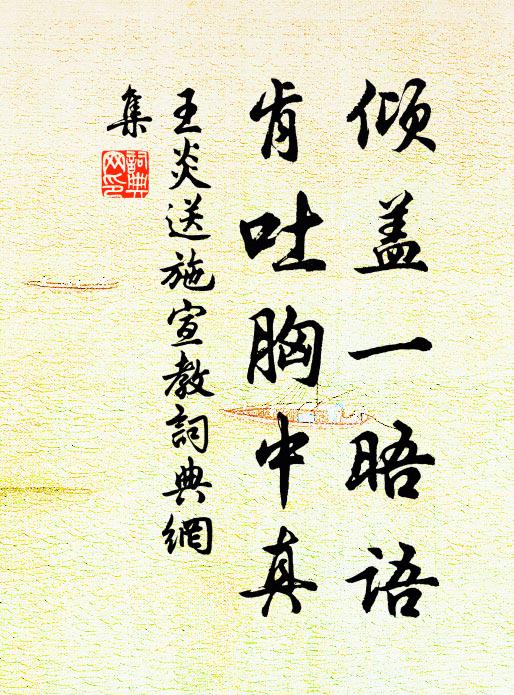 倾盖一晤语
肯吐胸中真
王炎送施宣教詞典網
集
詞典网印